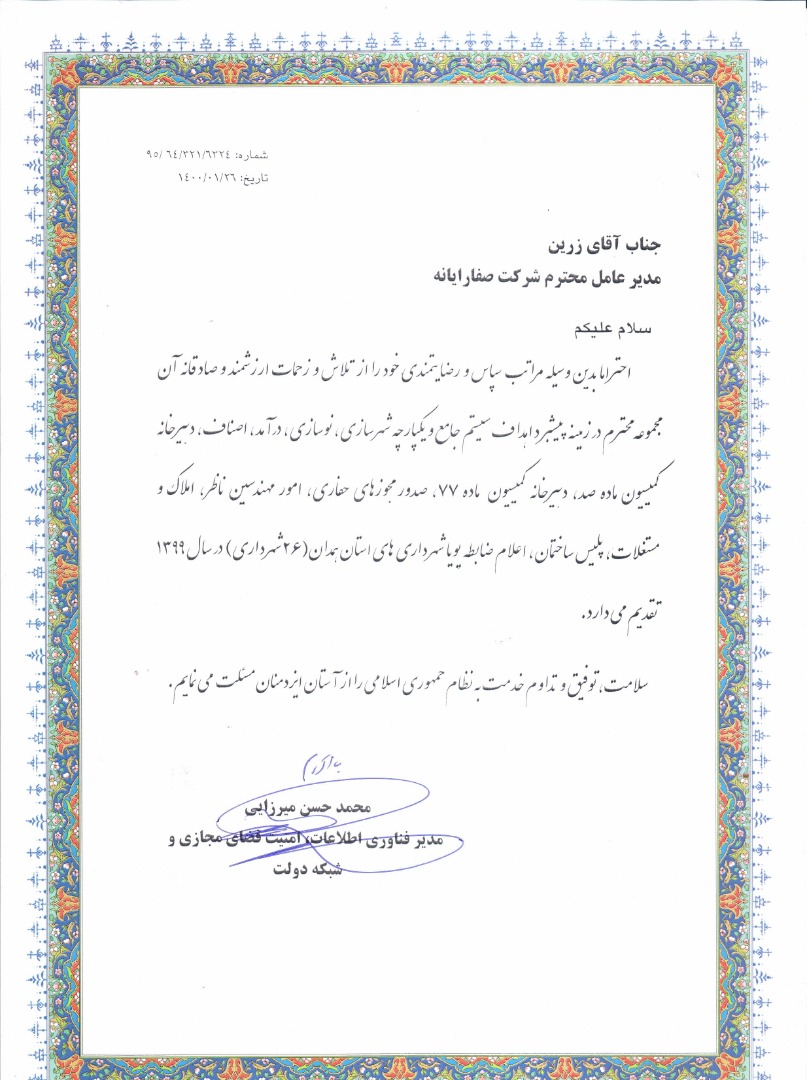 شماره: ۹۵/ ۶۴/۳۲۱/۶۳۲۴
تاریخ: ۱۴۰۰/۰۱/۲۶
جناب آقای زرین
مدیر عامل محترم شرکت صفارایانه
سلام علیکم
احتراما بدین وسیله مراتب سپاس و رضایتمندی خود را از تلاش و زحمات ارزشمند و صادقانه آن
مجموعه محترم در زمینه پیشبرد اهداف سیستم جامع و یکپارچه شهرسازی، نوسازی، درآمد، اصناف، دبیرخانه
کمیسیون ماده صد، دبیرخانه کمیسیون ماده ۷۷، صدور مجوزهای حفاری، امور مهندسین ناظر، املاک و
مستغلات، پلیس ساختمان، اعلام ضابطه پویا شهرداری های استان همدان (۲۶ شهرداری) در سال ۱۳۹۹
تقدیم می دارد.
سلامت، توفیق و تداوم خدمت به نظام جمهوری اسلامی را از آستان ایزد منان مسئلت می نمایم.
محمد حسن میرزایی
مدیر فناوری اطلاعات، امنیت فضای مجازی و
شبکه دولت